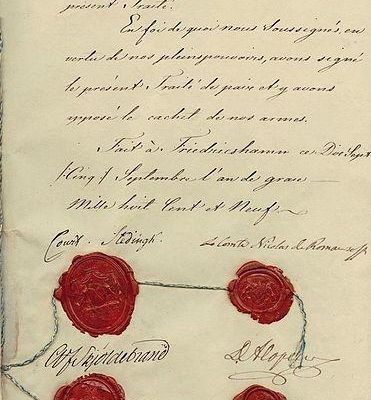 présent Traité.
En foi de quoi nous Soussignés, en
vertu de nos pleinspouvoirs, avons signé
le présent Traité de paix et y avons
apposé le cachet de nos armes.
Fait à Friedrichshamm ce Dix Sept
[Cinq] Septembre l'an de grace
Mille huit Cent et Neuf
Court Stedingk. Le Comte Nicolas de Romanzoff
A. F. Skjöldebrand D'Alopeus